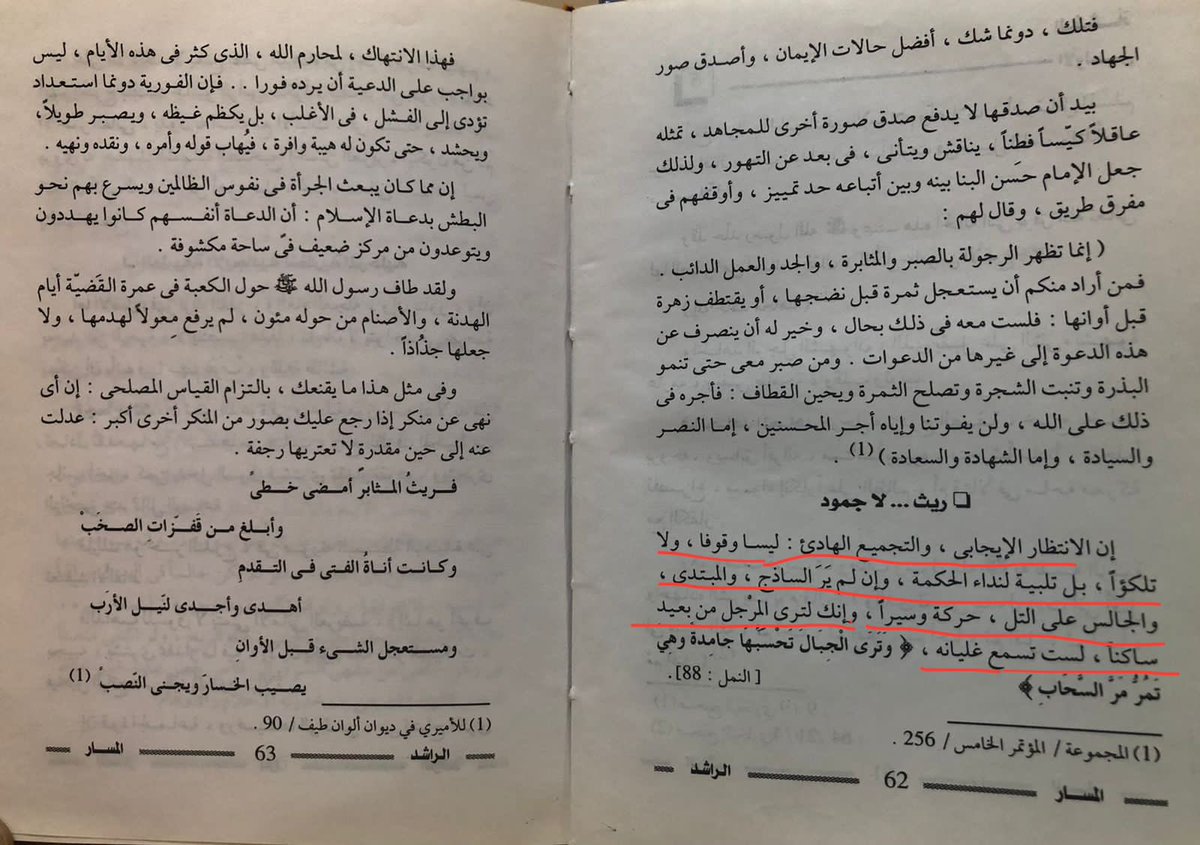 فتلك ، دونما شك ، أفضل حالات الإيمان ، وأصدق صور
الجهاد .
بيد أن صدقها لا يدفع صدق صورة أخرى للمجاهد ، تمثله
عاقلاً كيّساً فطناً ، يناقش ويتأنى ، فى بعد عن التهور ، ولذلك
جعل الإمام حسَن البنا بينه وبين أتباعه حد تمييز ، وأوقفهم فى
مفرق طريق ، وقال لهم :
( إنما تظهر الرجولة بالصبر والمثابرة ، والجد والعمل الدائب .
فمن أراد منكم أن يستعجل ثمرة قبل نضجها ، أو يقتطف زهرة
قبل أوانها : فلست معه فى ذلك بحال ، وخير له أن ينصرف عن
هذه الدعوة إلى غيرها من الدعوات . ومن صبر معى حتى تنمو
البذرة وتنبت الشجرة وتصلح الثمرة ويحين القطاف : فأجره فى
ذلك على الله ، ولن يفوتنا وإياه أجر المحسنين ، إما النصر
والسيادة ، وإما الشهادة والسعادة ) (1) .
❑ ريث ... لا جمود
إن الانتظار الإيجابى ، والتجميع الهادئ : ليسا وقوفا ، ولا
تلكؤاً ، بل تلبية لنداء الحكمة ، وإن لم يَرَ الساذج ، والمبتدى ،
والجالس على التل ، حركة وسيراً ، وإنك لترى المرْجل من بعيد
ساكناً ، لست تسمع غليانه ، ﴿ وَتَرَى الْجِبَالَ تَحْسَبُهَا جَامدةً وَهِيَ
تَمُرُّ مَرَّ السَّحَابِ ﴾ [ النمل : 88] .
(1) المجموعة / المؤتمر الخامس / 256 .
المسار 62 الراشد
فهذا الانتهاك ، لمحارم الله ، الذى كثر فى هذه الأيام ، ليس
بواجب على الدعية أن يرده فورا . . فإن الفورية دونما استعداد
تؤدى إلى الفشل ، فى الأغلب ، بل يكظم غيظه ، ويصبر طويلاً،
ويحشد ، حتى تكون له هيبة وافرة ، فيُهاب قوله وأمره ، ونقده ونهيه .
إن مما كان يبعث الجرأة فى نفوس الظالمين ويسرع بهم نحو
البطش بدعاة الإسلام : أن الدعاة أنفسهم كانوا يهددون
ويتوعدون من مركز ضعيف فىّ ساحة مكشوفة .
ولقد طاف رسول الله ﷺ حول الكعبة فى عمرة القَضيّة أيام
الهدنة ، والأصنام من حوله مئون ، لم يرفع معولاً لهدمها ، ولا
جعلها جذُاذاً .
وفى مثل هذا ما يقنعك ، بالتزام القياس المصلحى : إن أى
نهى عن منكر إذا رجع عليك بصور من المنكر أخرى أكبر : عدلت
عنه إلى حين مقدرة لا تعتريها رجفة .
فريثُ المثابر أمضى خطىً
وأبلغ من قَفَزات الصخَبْ
وكانت أناةُ الفتى فى التقدم
أهدى وأجدى لنَيل الأرَب
ومستعجل الشىء قبل الأوانِ
يصيب الخسارَ ويجنى النّصبْ (1)
(1) للأميري في ديوان ألوان طيف / 90 .
المسار 63 الراشد